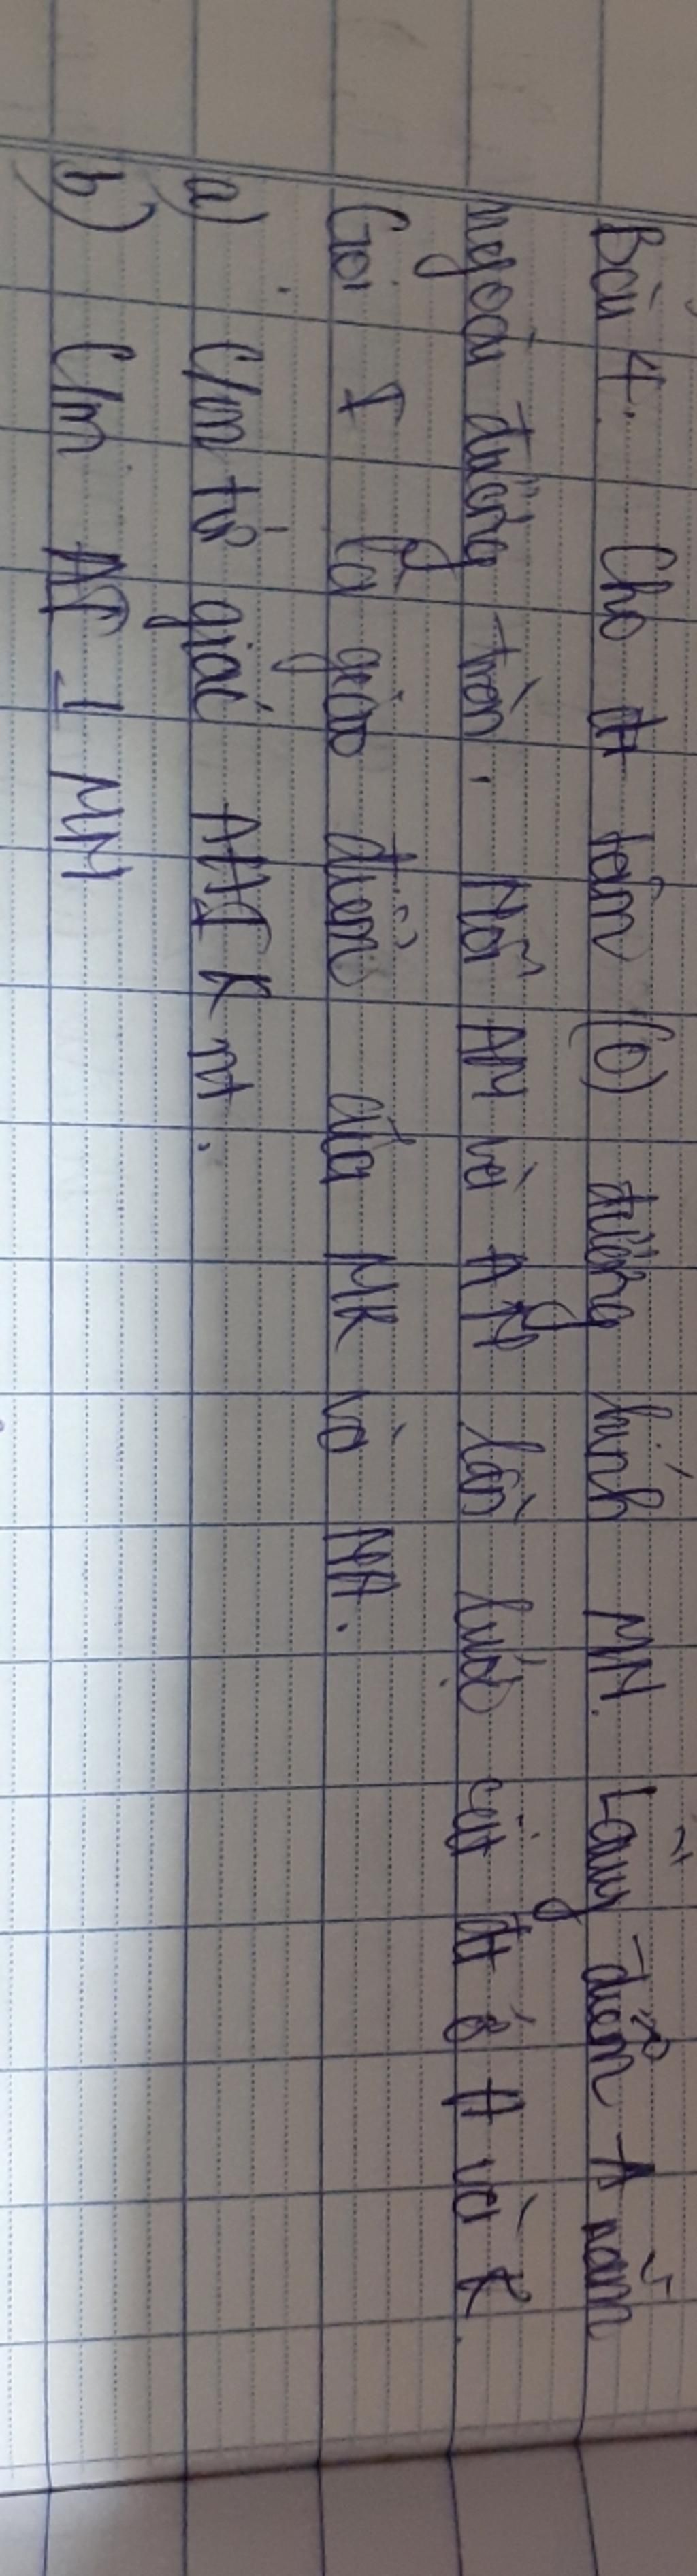 Bài 4. Cho đt tâm (O) đường kính MN. Lấy điểm A nằm
ngoài đường tròn. Nối AM và AN lần lượt cắt đt ở H và K.
Gọi I là giao điểm của MK và NH.
a) C/m tứ giác AHIK nt.
b) C/m AI ⊥ MN